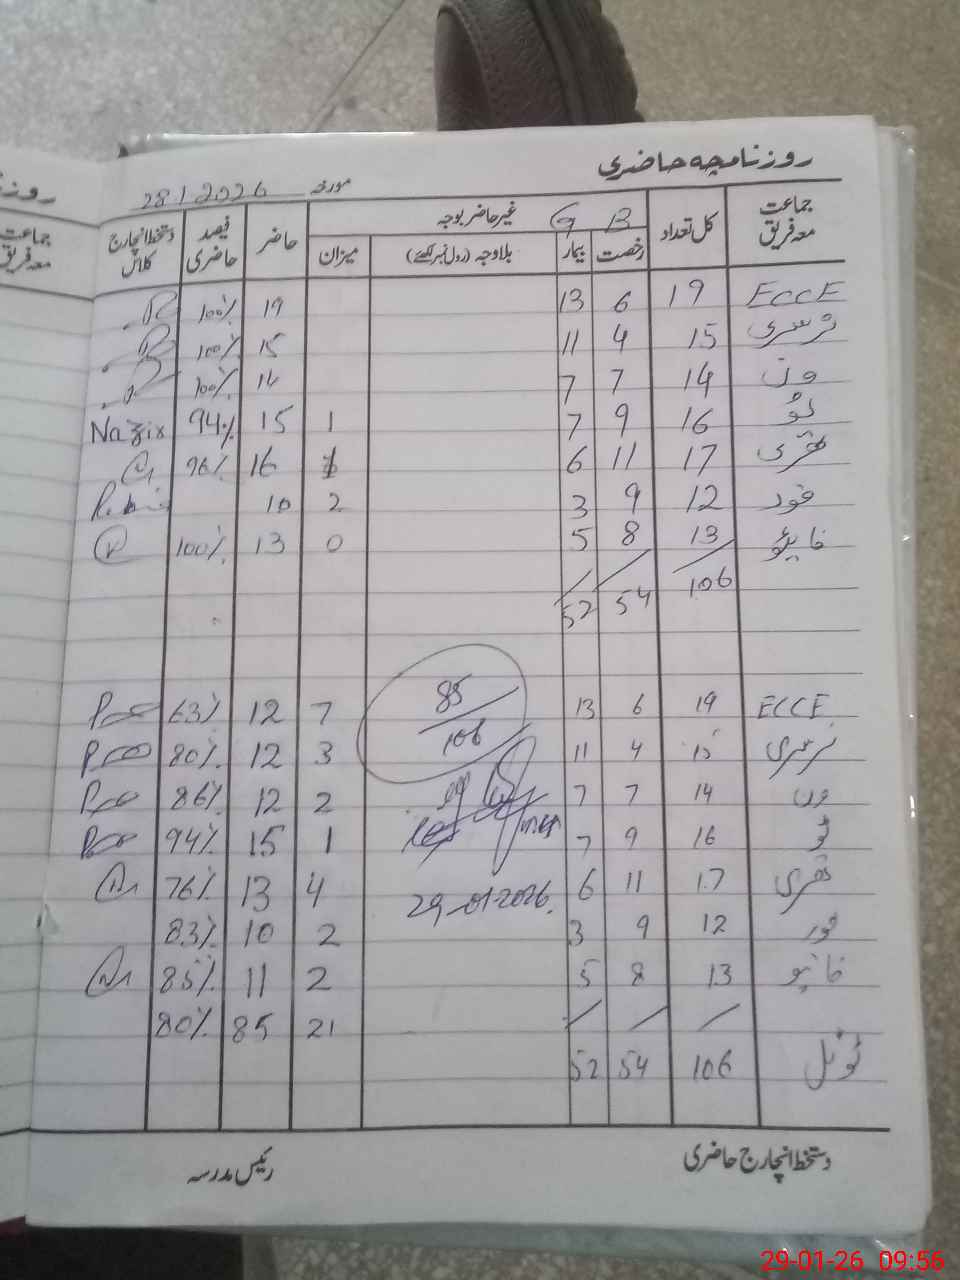 روزنامچہ حاضری
مورخہ 28.1.2026
جماعت معہ فریق کل تعداد B رخصت G بیمار غیر حاضر بوجہ بلاوجہ (رول نمبر لکھیے) میزان حاضر فیصد حاضری دستخط انچارج کلاس
ECCE 19 6 13 19 100%
نرسری 15 4 11 15 100%
ون 14 7 7 14 100%
ٹو 16 9 7 1 15 94% Nazix
تھری 17 11 6 1 16 96%
فور 12 9 3 2 10
فائیو 13 8 5 0 13 100%
106 54 52
ECCE 19 6 13 7 12 63%
نرسری 15 4 11 3 12 80%
ون 14 7 7 2 12 86%
ٹو 16 9 7 1 15 94%
تھری 17 11 6 4 13 76%
فور 12 9 3 2 10 83%
فائیو 13 8 5 2 11 85%
21 85 80%
ٹوٹل 106 54 52
85
106
29-01-2026.
دستخط انچارج حاضری رئیس مدرسہ
روزنا
جماعت
معہ فریق
29-01-26 09:56